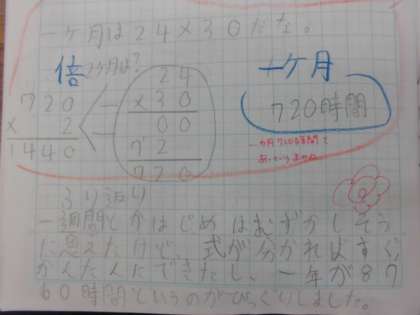 一ヶ月は24×30だな。
倍 2ヶ月は?
720
× 2
1440
24
×30
00
72
720
一ヶ月
720時間
ふり返り
一週間とかはじめはむずかしそう
に思えたけど、式が分かればすぐ
かんたんにできたし、一年が87
60時間というのがびっくりしました。